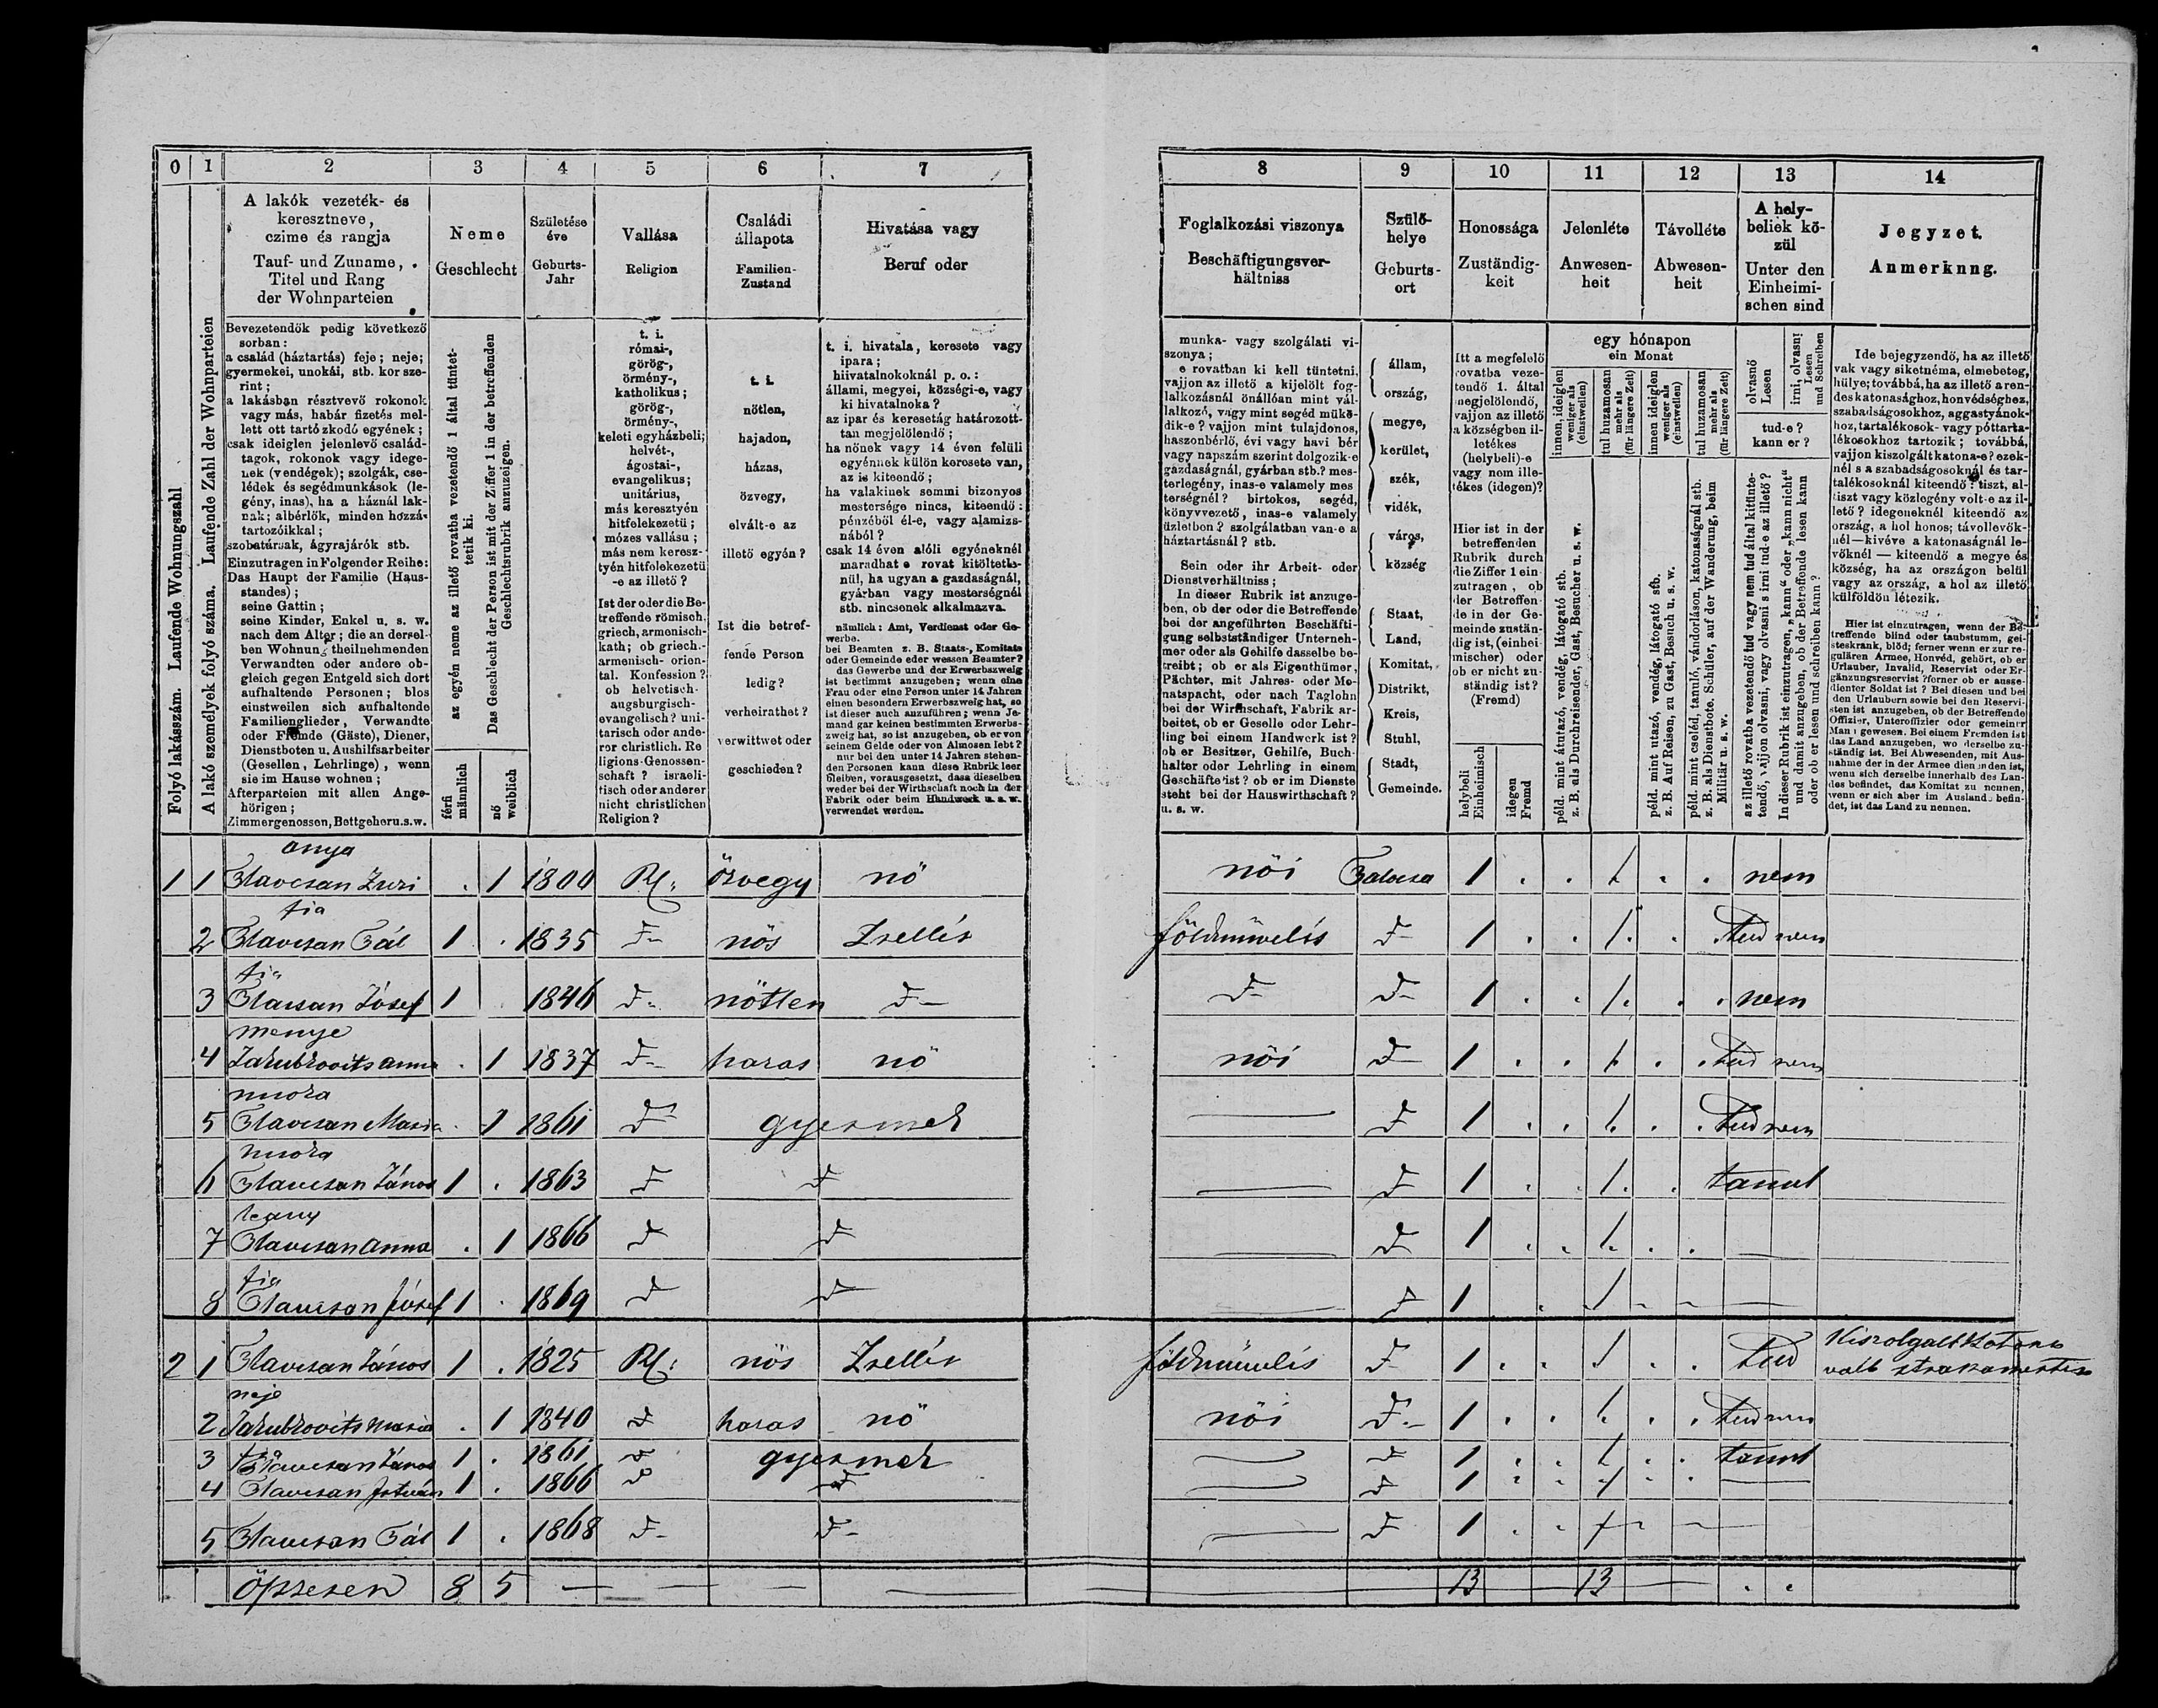 0 1 2 3 4 5 6 7
A lakók vezeték- és
keresztneve,
czime és rangja
Tauf- und Zuname,
Titel und Rang
der Wohnparteien
Neme
Geschlecht
Születése
éve
Geburts-
Jahr
Vallása
Religion
Családi
állapota
Familien-
Zustand
Hivatása vagy
Beruf oder
Folyó lakásszám. Laufende Wohnungszahl
A lakó személyek folyó száma. Laufende Zahl der Wohnparteien
Bevezetendők pedig következő
sorban:
a család (háztartás) feje; neje;
gyermekei, unokái, stb. kor sze-
rint;
a lakásban résztvevő rokonok
vagy más, habár fizetés mel-
lett ott tartózkodó egyének;
csak ideiglen jelenlevő család-
tagok, rokonok vagy idege-
nek (vendégek); szolgák, cse-
lédek és segédmunkások (le-
gény, inas), ha a háznál lak-
nak; albérlők, minden hozzá-
tartozóikkal;
szobatársak, ágyrajárók stb.
Einzutragen in Folgender Reihe:
Das Haupt der Familie (Haus-
standes);
seine Gattin;
seine Kinder, Enkel u. s. w.
nach dem Alter; die an dersel-
ben Wohnung theilnehmenden
Verwandten oder andere ob-
gleich gegen Entgeld sich dort
aufhaltende Personen; blos
einstweilen sich aufhaltende
Familienglieder, Verwandte
oder Fremde (Gäste), Diener,
Dienstboten u. Aushilfsarbeiter
(Gesellen, Lehrlinge), wenn
sie im Hause wohnen;
Afterparteien mit allen Ange-
hörigen;
Zimmergenossen, Bettgeher u.s.w.
az egyén neme az illető rovatba vezetendő 1 által tüntet-
tetik ki.
Das Geschlecht der Person ist mit der Ziffer 1 in der betreffenden
Geschlechtsrubrik anzuzeigen.
férfi
männlich
nő
weiblich
t. i.
római-,
görög-,
örmény-,
katholikus;
görög-,
örmény-,
keleti egyházbeli;
helvét-,
ágostai-,
evangelikus;
unitárius,
más keresztyén
hitfelekezetü;
mózes vallásu;
más nem keresz-
tyén hitfelekezetü
-e az illető?
Ist der oder die Be-
treffende römisch,
griech, armenisch-
kath; ob griech.-
armenisch- orien-
tal. Konfession?
ob helvetisch-
angsburgisch-
evangelisch? uni-
tarisch oder ande-
ror christlich. Re
ligions-Genossen-
schaft? israeli-
tisch oder anderer
nicht christlichen
Religion?
t. i.
nőtlen,
hajadon,
házas,
özvegy,
elvált-e az
illető egyén?
Ist die betref-
fende Person
ledig?
verheirathet?
verwittwet oder
geschieden?
t. i. hivatala, keresete vagy
ipara;
hiivatalnokoknál p. o.:
állami, megyei, községi-e, vagy
ki hivatalnoka?
az ipar és keresetág határozott-
tan megjelölendő;
ha nőnek vagy 14 éven felüli
egyénnek külön keresete van,
az is kiteendő;
ha valakinek semmi bizonyos
mestersége nincs, kiteendő:
pénzéből él-e, vagy alamizs-
nából?
csak 14 éven alóli egyéneknél
maradhat e rovat kitöltetle-
nül, ha ugyan a gazdaságnál,
gyárban vagy mesterségnél
stb. nincsenek alkalmazva.
nämlich: Amt, Verdienst oder Ge-
werbe.
bei Beamten z. B. Staats-, Komitats
oder Gemeinde eder wessen Beamter?
das Gewerbe und der Erwerbszweig
ist bestimmt anzugeben; wenn eine
Frau oder eine Person unter 14 Jahren
einen besondern Erwerbszweig hat, so
ist dieser auch anzuführen; wenn Je-
mand gar keinen bestimmten Erwerbs-
zweig hat, so ist anzugeben, ob er von
seinem Gelde oder von Almosen lebt?
nur bei den unter 14 Jahren stehen-
den Personen kann diese Rubrik leer
bleiben, vorausgesetzt, dass dieselben
weder bei der Wirthschaft noch in der
Fabrik oder beim Handwerk u. s. w.
verwendet werden.
anya
1 1 1 1800 özvegy nő
fia
2 Pál 1 1835 nős Zsellér
fia
3 József 1 1846 nőtlen
menye
4 Jakubkovits anna 1 1837 haras nő
5 Maria 1 1861 gyermek
6 János 1 1863
leany
7 anna 1 1866
fia
8 József 1 1869
2 1 János 1 1825 nős Zsellér
neje
2 Jakubkovits maria 1 1840 haras nő
3 János 1 1861 gyermek
4 István 1 1866
5 Pál 1 1868
öszvesen 8 5
8 9 10 11 12 13 14
Foglalkozási viszonya
Beschäftigungsver-
hältniss
Szülő-
helye
Geburts-
ort
Honossága
Zuständig-
keit
Jelenléte
Anwesen-
heit
Távolléte
Abwesen-
heit
A hely-
beliek kö-
zül
Unter den
Einheimi-
schen sind
Jegyzet.
Anmerknng.
munka- vagy szolgálati vi-
szonya;
e rovatban ki kell tüntetni,
vajjon az illető a kijelölt fog-
lalkozásnál önállóan mint vál-
lalkozó, vagy mint segéd mükö-
dik-e? vajjon mint tulajdonos,
haszonbérlő, évi vagy havi bér
vagy napszám szerint dolgozik-e
gazdaságnál, gyárban stb.? mes-
terlegény, inas-e valamely mes
terségnél? birtokos, segéd,
könyvvezető, inas-e valamely
üzletben? szolgálatban van-e a
háztartásnál? stb.
Sein oder ihr Arbeit- oder
Dienstverhältniss;
In dieser Rubrik ist anzuge-
ben, ob der oder die Betreffende
bei der angeführten Beschäfti-
gung selbstständiger Unterneh-
mer oder als Gehilfe dasselbe be-
treibt; ob er als Eigenthümer,
Pächter, mit Jahres- oder Mo-
natspacht, oder nach Taglohn
bei der Wirthschaft, Fabrik ar-
beitet, ob er Geselle oder Lehr-
ling bei einem Handwerk ist?
ob er Besitzer, Gehilfe, Buch-
halter oder Lehrling in einem
Geschäfte ist? ob er im Dienste
steht bei der Hauswirthschaft?
u. s. w.
állam,
ország,
megye,
kerület,
szék,
vidék,
város,
község
Staat,
Land,
Komitat,
Distrikt,
Kreis,
Stuhl,
Stadt,
Gemeinde.
Itt a megfelelő
rovatba veze-
tendő 1. által
megjelölendő,
vajjon az illető
a községben il-
letékes
(helybeli)-e
vagy nem ille-
tékes (idegen)?
Hier ist in der
betreffenden
Rubrik durch
die Ziffer 1 ein
zutragen, ob
der Betreffen-
de in der Ge-
meinde zustän-
dig ist, (einhei-
mischer) oder
ob er nicht zu-
ständig ist?
(Fremd)
helybeli
Einheimisch
idegen
Fremd
egy hónapon
ein Monat
innen, ideiglen
weniger als
(einstweilen)
tul huzamosan
mehr als
(für längere Zeit)
innen ideiglen
weniger als
(einstweilen)
tul huzamosan
mehr als
(für längere Zeit)
péld. mint átutazó, vendég, látogató stb.
z. B. als Durchreisender, Gast, Besucher u. s. w.
péld. mint utazó, vendég, látogató stb.
z. B. Auf Reisen, zu Gast, Besuch u. s. w.
péld. mint cseléd, tanuló, vándorláson, katonaságnál stb.
z. B. als Dienstbote, Schüler, auf der Wanderung, beim
Militär u. s. w.
olvasnő
Lesen
irni, olvasni
Lesen
und Schreiben
tud-e?
kann er?
az illető rovatba vezetendő tud vagy nem tud által kitünte-
tendő, vajjon olvasni, vagy olvasni s irni tud-e az illető?
In dieser Rubrik ist einzutragen, „kann" oder „kann nicht"
und damit anzugeben, ob der Betreffende lesen kann
oder ob er lesen und schreiben kann?
Ide bejegyzendő, ha az illető
vak vagy siketnéma, elmebeteg,
hülye; továbbá, ha az illető a ren-
des katonasághoz, honvédséghez,
szabadságosokhoz, aggastyánok-
hoz, tartalékosok- vagy póttarta-
lékosokhoz tartozik; továbbá,
vajjon kiszolgált katona-e? ezek-
nél s a szabadságosoknál és tar-
talékosoknál kiteendő: tiszt, al-
tiszt vagy közlegény volt-e az il-
lető? idegeneknél kiteendő az
ország, a hol honos; távollevők-
nél—kivéve a katonaságnál le-
vőknél — kiteendő a megye és
község, ha az országon belül
vagy az ország, a hol az illető
külföldön létezik.
Hier ist einzutragen, wenn der Be-
treffende blind oder taubstumm, gei-
steskrank, blöd; ferner wenn er zur re-
gulären Armee, Honvéd, gehört, ob er
Urlauber, Invalid, Reservist oder Er-
gänzungsreservist? ferner ob er ausge-
dienter Soldat ist? Bei diesen und bei
den Urlaubern sowie bei den Reservi-
sten ist anzugeben, ob der Betreffende
Offizier, Unteroffizier oder gemeiner
Mann gewesen. Bei einem Fremden ist
das Land anzugeben, wo derselbe zu-
ständig ist. Bei Abwesenden, mit Aus-
nahme der in der Armee dienenden ist,
wenn sich derselbe innerhalb des Lan-
des befindet, das Komitat zu nennen,
wenn er sich aber im Auslande befin-
det, ist das Land zu nennen.
női 1 1 nem
földmüvelés 1 1 tud nem
1 1 nem
női 1 1 tud nem
1 1 tud nem
1 1 tanul
1 1
1 1
földmüvelés 1 1 tud Kiszolgalt Katona
volt
női 1 1 tud nem
1 1 tanul
1 1
1 1
13 13